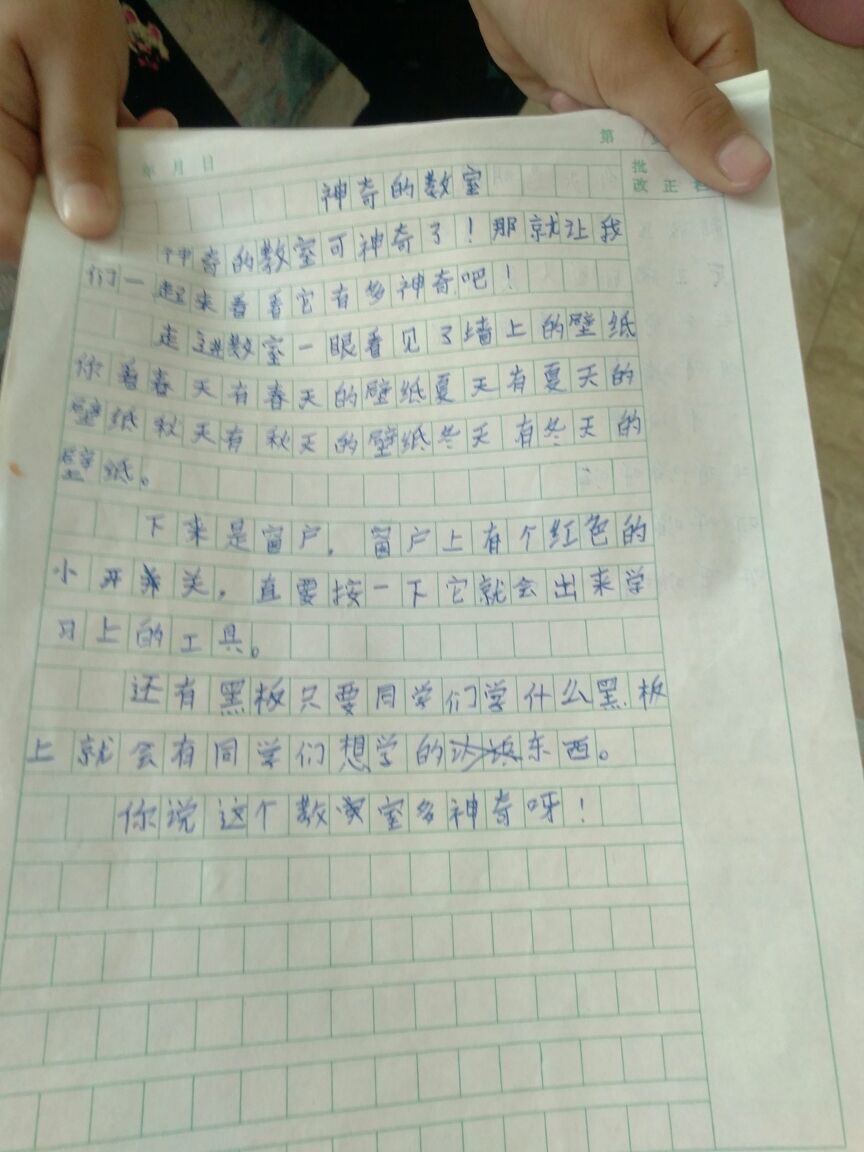 年 月 日
第
批
改 正 栏
神奇的教室
神奇的教室可神奇了！那就让我
们一起来看看它有多神奇吧！
走进教室一眼看见了墙上的壁纸
你看春天有春天的壁纸夏天有夏天的
壁纸秋天有秋天的壁纸冬天有冬天的
壁纸。
下来是窗户，窗户上有个红色的
小开关，直要按一下它就会出来学
习上的工具。
还有黑板只要同学们学什么黑板
上就会有同学们想学的东西。
你说这个教室多神奇呀！